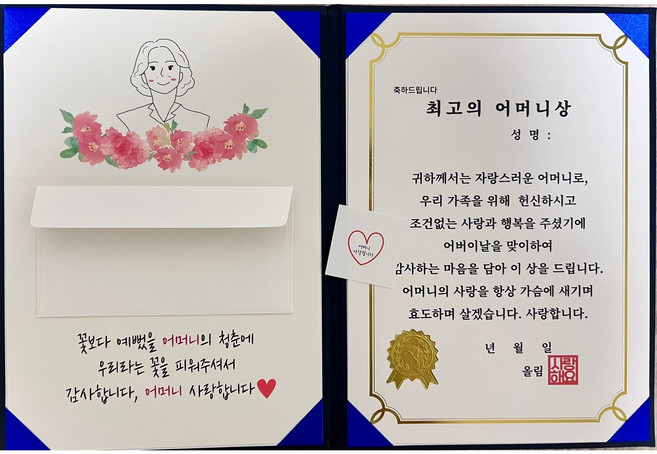 꽃보다 예뻤을 어머니의 청춘에
우리라는 꽃을 피워주셔서
감사합니다, 어머니 사랑합니다
축하드립니다
최고의 어머니상
성 명 :
귀하께서는 자랑스러운 어머니로,
우리 가족을 위해 헌신하시고
조건없는 사랑과 행복을 주셨기에
어버이날을 맞이하여
감사하는 마음을 담아 이 상을 드립니다.
어머니의 사랑을 항상 가슴에 새기며
효도하며 살겠습니다. 사랑합니다.
년 월 일
올림
사랑
해요
어머니
사랑합니다